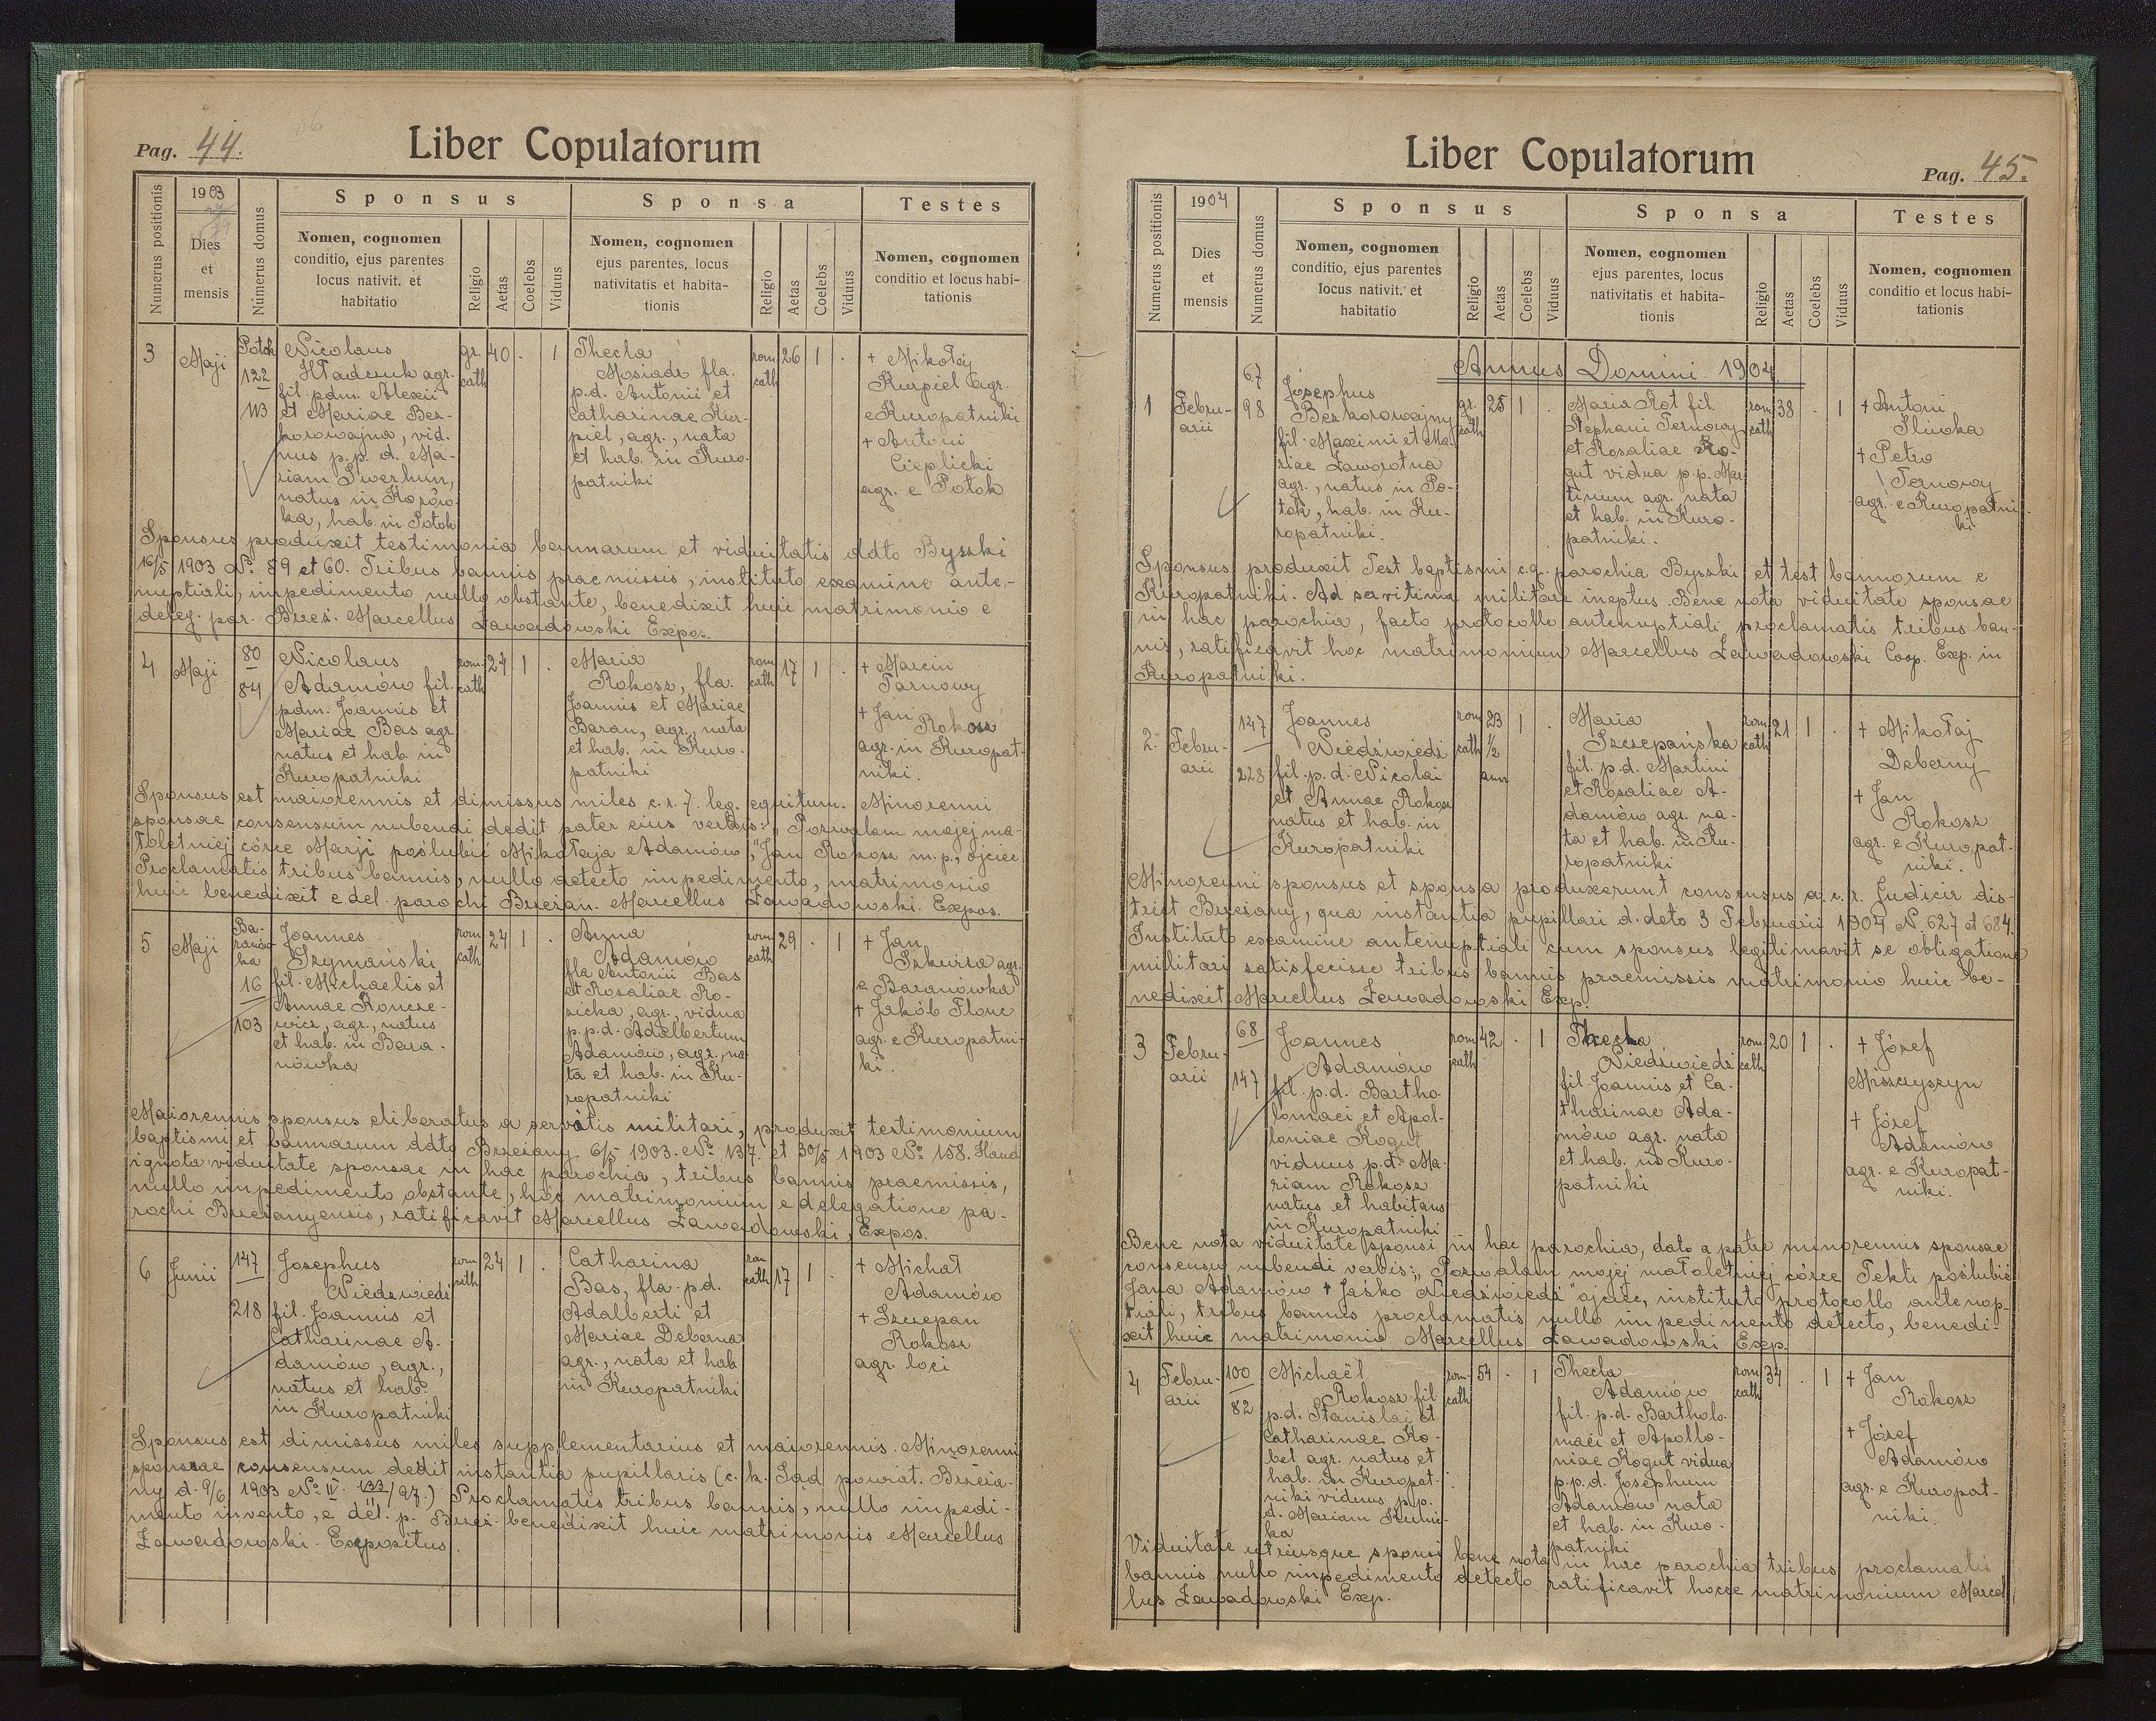 Pag. 44.
Liber Copulatorum
Numerus positionis
1903
Dies
et
mensis
Numerus domus
Sponsus
Nomen, cognomen
conditio, ejus parentes
locus nativit. et
habitatio
Religio
Aetas
Coelebs
Viduus
Sponsa
Nomen, cognomen
ejus parentes, locus
nativitatis et habita-
tionis
Religio
Aetas
Coelebs
Viduus
Testes
Nomen, cognomen
conditio et locus habi-
tationis
3
Maji
Potok
122
113
Nicolaus
agr.
fil. pdm. Alexii
et Mariae Bez-
korowajna, vid.
nus p. p. d. Ma-
riam Swerhun,
natus in
ka, hab. in Potok
gr.
cath
40
.
1
Thecla
Mosiadz fla.
p.d. Antonii et
Catharinae Kur-
piel, agr., nata
et hab. in Kuro-
patniki
rom
cath
26
1
.
+ Mikołaj
Kurpiel agr.
e Kuropatniki
+ Antoni
Cieplicki
agr. e Potok
Sponsus produxit testimonia bannarum et viduitatis ddto Byszki
16/5 1903 No. 59 et 60. Tribus bannis praemissis, instituto examine ante-
nuptiali, impedimento nullo obstante, benedixit huic matrimonio e
deleg. par. Brzeż. Marcellus Zawadowski Expos.
4
Maji
80
84
Nicolaus
Adamów fil.
pdm. Joannis et
Mariae Bas agr.
natus et hab. in
Kuropatniki
rom.
cath
24
1
.
Maria
Rokosz, fla.
Joannis et Mariae
Baran, agr., nata
et hab. in Kuro-
patniki
rom
cath
17
1
.
+ Marcin
Tarnowy
+ Jan
Rokosz
agr. in Kuropat-
niki.
Sponsus est maiorennis et dimissus miles c. r. 7. leg. equitum. Minorenni
sponsae consensum nubendi dedit pater eius verbis: „Pozwalam mojej ma-
łoletniej córce Marji poślubić Mikołaja Adamów," Jan Rokosz m. p., ojciec
Proclamatis tribus bannis, nullo detecto impedimento, matrimonio
huic benedixit e del. parochi Brzeżan. Marcellus Zawadowski. Expos.
5
Maji
Ba-
ranów-
ka
16
103
Joannes
Szymański
fil. Michaelis et
Annae Roncze-
wicz, agr., natus
et hab. in Bara-
nówka
rom
cath
24
1
.
Anna
Adamów
fla Antonii Bas
et Rosaliae Ro-
zicka, agr., vidua
p. p. d. Adalbertum
Adamów, agr., na-
ta et hab. in Ku-
ropatniki
rom
cath
29
.
1
+ Jan
Szkwira agr.
e Baranówka
+ Jakób Florc
agr. e Kuropatni-
ki.
Maiorennis sponsus eliberatus a servitiis militari, produxit testimonium
baptismi et bannarum ddto Brzeżany 6/5 1903. No. 137. et 30/5 1903 No. 158. Haud
ignota viduitate sponsae in hac parochia, tribus bannis praemissis,
nullo impedimento obstante, hoc matrimonium e delegatione pa-
rochi Brzeżanyensis, ratificavit Marcellus Zawadowski, Expos.
6
Junii
147
218
Josephus
Niedźwiedź
fil. Joannis et
Catharinae A-
damów, agr.,
natus et hab.
in Kuropatniki
rom
cath
24
1
.
Catharina
Bas, fla. p.d.
Adalberti et
Mariae Deberna
agr., nata et hab
in Kuropatniki
rom
cath
17
1
.
+ Michał
Adamów
+ Szczepan
Rokosz
agr. loci
Sponsus est dimissus miles supplementarius et maiorennis. Minorenni
sponsae consensum dedit instantia pupillaris (c. k. Sąd powiat. Brzeża-
ny d. 9/6 1903 No. IV. 133/97.) Proclamatis tribus bannis, nullo impedi-
mento invento, e del. p. Brzeż. benedixit huic matrimonio Marcellus
Zawadowski. Expositus.
Liber Copulatorum
Pag. 45.
Numerus positionis
1904
Dies
et
mensis
Numerus domus
Sponsus
Nomen, cognomen
conditio, ejus parentes
locus nativit. et
habitatio
Religio
Aetas
Coelebs
Viduus
Sponsa
Nomen, cognomen
ejus parentes, locus
nativitatis et habita-
tionis
Religio
Aetas
Coelebs
Viduus
Testes
Nomen, cognomen
conditio et locus habi-
tationis
Annus Domini 1904.
1
Febru-
arii
67
98
Josephus
Bezkorowajny
fil. Maximi et Ma-
riae Zaworotna
agr., natus in Po-
tok, hab. in Ku-
ropatniki.
gr.
cath
25
1
.
Maria Kot fil.
Stephani Ternowy
et Rosaliae Ro-
gut vidua p. p. Mar
tinum agr. nata
et hab. in Kuro-
patniki.
rom
cath
38
.
1
+ Antoni
Śliwka
+ Petro
Ternowy
agr. e Kuropatni-
ki
Sponsus produxit Test baptismi e g. parochia Byszki et test bannorum e
Kuropatniki. Ad servitima militare ineptus. Bene nota viduitate sponsae
in hac parochia, facto protocollo antenuptiali proclamatis tribus ban-
nis, ratificavit hoc matrimonium Marcellus Zawadowski Coop. Exp. in
Kuropatniki.
2.
Febru-
arii
147
228
Joannes
Niedźwiedź
fil. p. d. Nicolai
et Annae Rokosz
natus et hab. in
Kuropatniki
rom
cath
23
1/2
ann
1
.
Maria
Szczepańska
fil. p. d. Martini
et Rosaliae A-
damów agr. na-
ta et hab. in Ku-
ropatniki
rom
cath
21
1
.
+ Mikołaj
Deberny
+ Jan
Rokosz
agr. e Kuropat-
niki.
Minorenni sponsus et sponsa produxerunt consensus a c. r. Judicis dis-
trict Brzeżany, qua instantia pupillari d. dato 3 Februarii 1904 N. 627 et 684.
Instituto examine antenuptiali cum sponsus legitimavit se obligatione
militari satisfecisse tribus bannis praemissis matrimonio huic be-
nedixit Marcellus Zawadowski Exp.
3
Febru-
arii
68
147
Joannes
Adamów
fil. p. d. Bartho-
lomaei et Apol-
loniae Kogut
viduus p. d. Ma-
riam Rokosz
natus et habitans
in Kuropatniki
rom
cath
42
.
1
Thecla
Niedźwiedź
fil. Joannis et Ca-
tharinae Ada-
mów agr. nata
et hab. in Kuro-
patniki
rom
cath
20
1
.
+ Józef
Miszczyszyn
+ Józef
Adamów
agr. e Kuropat-
niki.
Bene nota viduitate sponsi in hac parochia, dato a patre minorennis sponsae
consensu nubendi verbis: „Pozwalam mojej małoletniej córce Tekli poślubić
Jana Adamów + Jaśko Niedźwiedź" ojciec, instituto protocollo antenup-
tiali, tribus bannis proclamatis nullo impedimento detecto, benedi-
xit huic matrimonio Marcellus Zawadowski Exp.
4
Febru-
arii
100
82
Michaël
Rokosz fil
p.d. Stanislai et
Catharinae Ko-
bet agr. natus et
hab. in Kuropat-
niki viduus p. p.
d. Mariam
ka
rom.
cath
54
.
1
Thecla
Adamów
fil. p. d. Barthol-
maei et Apollo-
niae Kogut vidua
p. p. d. Josephum
Adamów nata
et hab. in Kuro-
patniki
rom
cath
34
.
1
+ Jan
Rokosz
+ Józef
Adamów
agr. e Kuropat-
niki.
Viduitate utriusque sponsi bene nota in hac parochia tribus proclamatis
bannis nullo impedimento detecto ratificavit hocce matrimonium Marcel
lus Zawadowski Exp.